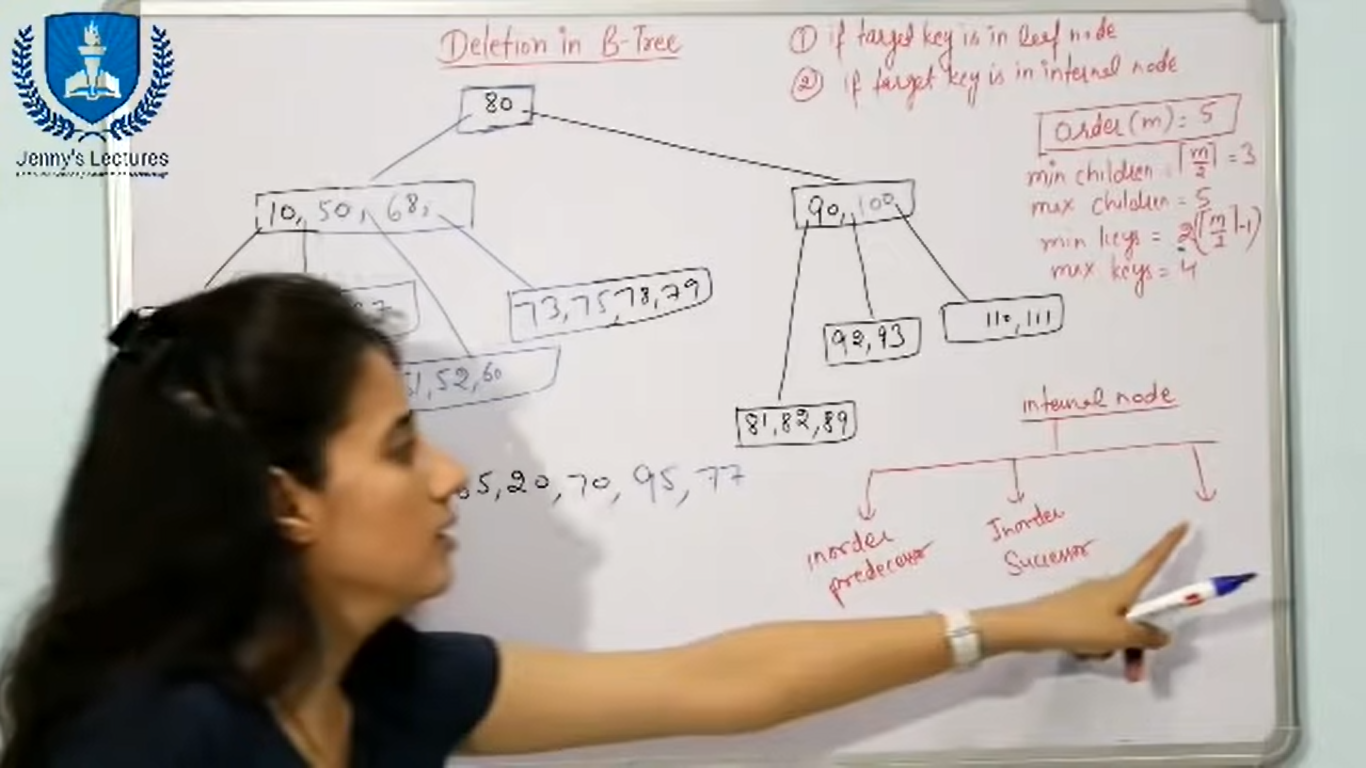 Jenny's Lectures
Deletion in B-Tree
① if target key is in leaf node
② if target key is in internal node
80
Order(m) = 5
min children = ⌈m/2⌉ = 3
max children = 5
min keys = 2 (⌈m/2⌉-1)
max keys = 4
10, 50, 68,
90, 100
73, 75, 78, 79
92, 93
110, 111
52, 60
81, 82, 89
internal node
5, 20, 70, 95, 77
inorder
predecessor
Inorder
Successor